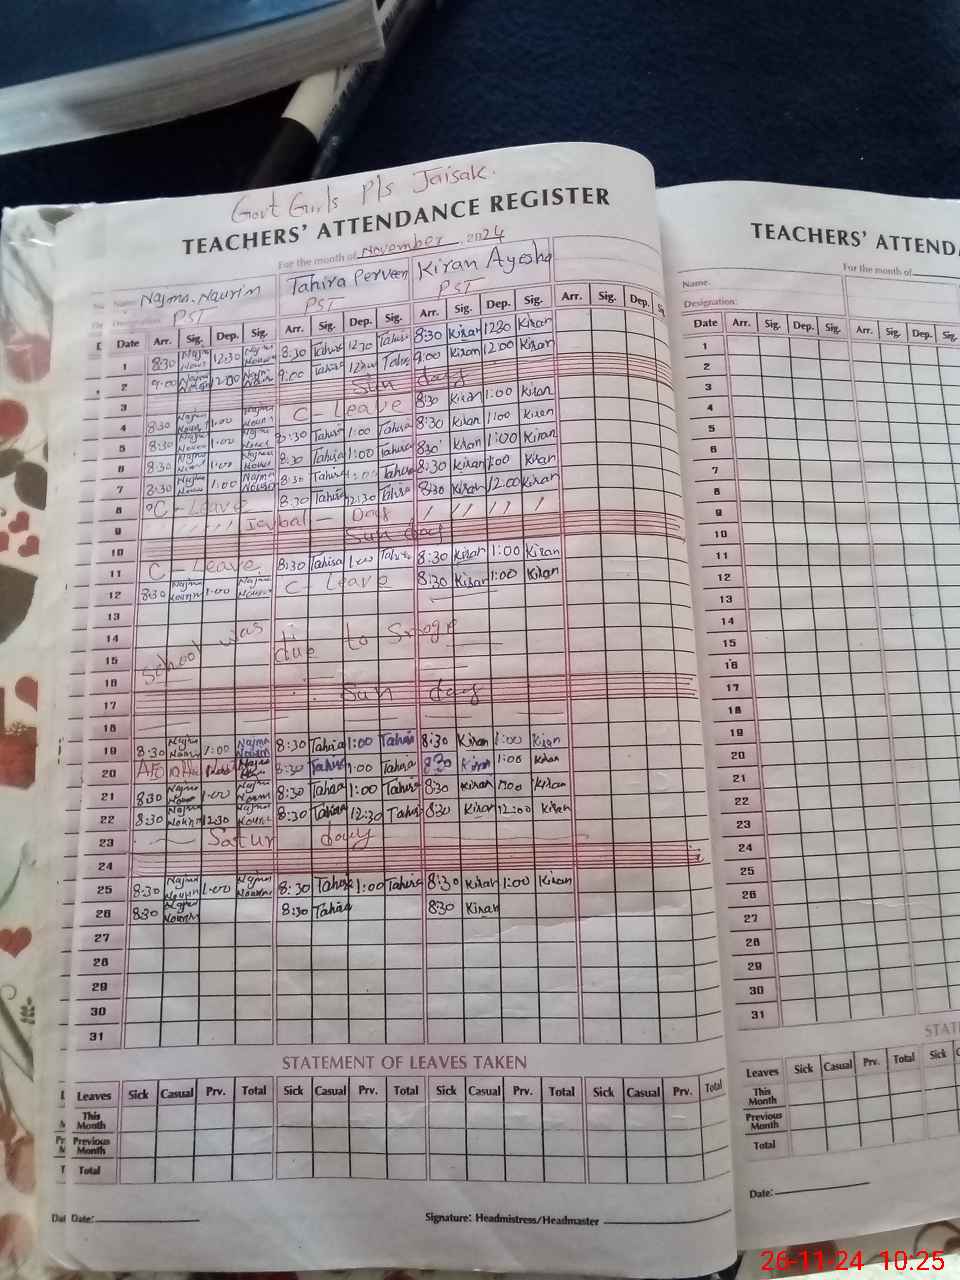 Govt Girls P/s Jaisak.
TEACHERS' ATTENDANCE REGISTER
For the month of November 2024
Name Najma Naurin Tahira Perveen Kiran Ayesha
PST PST PST
Date Arr. Sig. Dep. Sig. Arr. Sig. Dep. Sig. Arr. Sig. Dep. Sig. Arr. Sig. Dep. Sig.
1 8:30 12:30 8:30 Tahira 12:30 Tahira 8:30 Kiran 1230 Kiran
2 9:00 12:00 9:00 9:00 Kiran 1200 Kiran
3 Sun day
4 8:30 1:00 C-Leave 8:30 Kiran 1:00 Kiran
5 8:30 1:00 8:30 Tahira 1:00 Tahira 8:30 Kiran 1:00 Kiran
6 8:30 1:00 8:30 Tahira 1:00 Tahira 8:30 Kiran 1:00 Kiran
7 8:30 1:00 8:30 Tahira 1:00 Tahira 8:30 Kiran 1:00 Kiran
8 C-Leave 8:30 Tahira 12:30 Tahira 8:30 Kiran 12:00 Kiran
9 Day
10 Sun day
11 C-Leave 8:30 Tahira 1:00 8:30 Kiran 1:00 Kiran
12 8:30 Najma 1:00 Najma C-Leave 8:30 Kiran 1:00 Kiran
13
14 School was due to Smoge
15
16
17 Sun day
18
19 8:30 Najma 1:00 Najma 8:30 Tahira 1:00 Tahira 8:30 Kiran 1:00 Kiran
20 8:30 Tahira 1:00 Tahira 8:30 Kiran 1:00 Kiran
21 8:30 Najma 1:00 Najma 8:30 Tahira 1:00 Tahira 8:30 Kiran 1:00 Kiran
22 8:30 Najma 12:30 Najma 8:30 Tahira 12:30 Tahira 8:30 Kiran 12:00 Kiran
23 Satur day
24
25 8:30 Najma 1:00 Najma 8:30 Tahira 1:00 Tahira 8:30 Kiran 1:00 Kiran
26 8:30 Najma 8:30 Tahira 8:30 Kiran
27
28
29
30
31
STATEMENT OF LEAVES TAKEN
Leaves Sick Casual Prv. Total Sick Casual Prv. Total Sick Casual Prv. Total Sick Casual Prv. Total
This Month
Previous Month
Total
Date: Signature: Headmistress/Headmaster
TEACHERS' ATTENDA
For the month of
Name.
Designation:
Date Arr. Sig. Dep. Sig. Arr. Sig. Dep. Sig.
1
2
3
4
5
6
7
8
9
10
11
12
13
14
15
16
17
18
19
20
21
22
23
24
25
26
27
28
29
30
31
STAT
Leaves Sick Casual Prv. Total Sick
This Month
Previous Month
Total
Date:
26-11-24 10:25